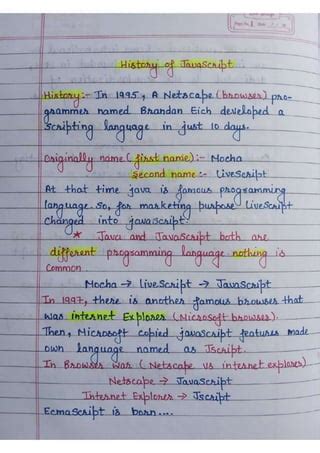 History of JavaScript
History:- In 1995, A Netscape (browser) pro-
grammer named Brandan Eich developed a
scripting language in just 10 days.
Originally name (first name):- Mocha
Second name:- LiveScript
At that time java is famous programming
language. So, for marketing purpose LiveScript
changed into javascript.
* Java and JavaScript both are
different programming language nothing is
common.
Mocha → liveScript → JavaScript
In 1997, there is another famous browser that
was internet Explorer (Microsoft browser).
Then, Microsoft copied javascript features made
own language named as Jscript.
In Browser war (Netscape vs internet explorer)
Netscape → JavaScript
Internet Explorer → Jscript
EcmaScript is born....